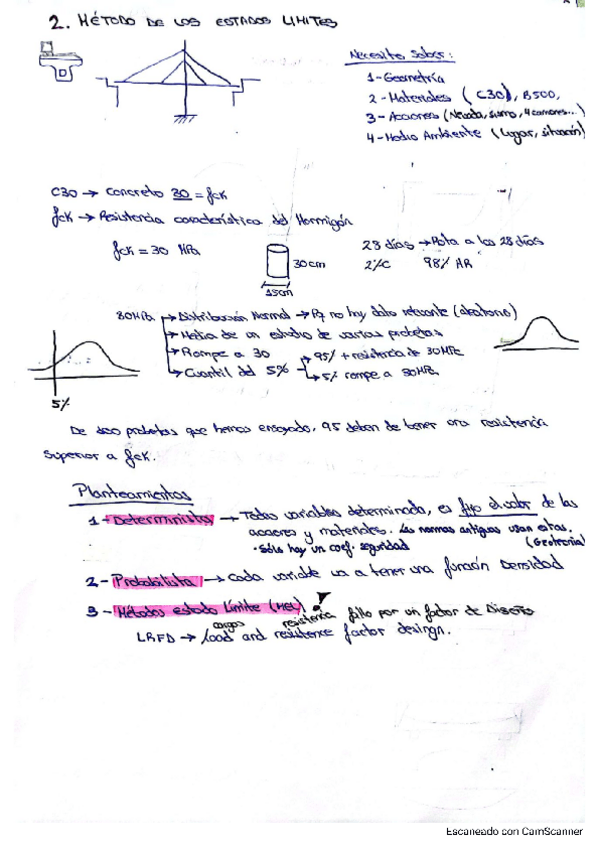 2. MÉTODO DE LOS ESTADOS LIMITES
Necesito Saber:
1-Geometría
2-Materiales ( C30), B500,
3-Acciones (Nevada, sismo, 4 camiones...)
4-Medio Ambiente (Lugar, situación)
C30 → Concreto 30 = fck
fck → Resistencia característica del Hormigón
fck = 30 MPa
30cm
15cm
28 días → Rota a los 28 días
2%C 98% HR
30MPa
→ Distribución Normal → Pq no hay dato relevante (aleatorio)
→ Media de un estudio de varias probetas
→ Rompe a 30
→ Cuartil del 5%
→ 95% + resistencia de 30MPa
→ 5% rompe a 30MPa
5%
De 100 probetas que hemos ensayado, 95 deben de tener una resistencia
superior a fck.
Planteamientos
1-Determinista → Todas variables determinada, es fijo el valor de las
acciones y materiales. Las normas antiguas usan estas.
• Sólo hay un coef. seguridad (Geotecnia)
2-Probabilista → Cada variable va a tener una función Densidad
3-Métodos estado Límite (MEL)
cargas resistencia fallo por un factor de Diseño
LRFD → load and resistence factor desingn.
Escaneado con CamScanner